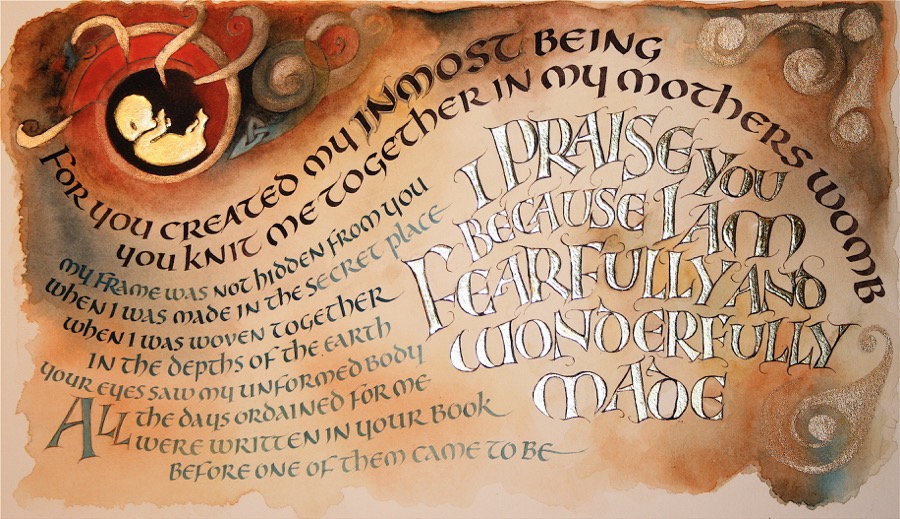 FOR YOU CREATED MY INMOST BEING
YOU KNIT ME TOGETHER IN MY MOTHERS WOMB
I PRAISE YOU
BECAUSE I AM
FEARFULLY AND
WONDERFULLY
MADE
MY FRAME WAS NOT HIDDEN FROM YOU
WHEN I WAS MADE IN THE SECRET PLACE
WHEN I WAS WOVEN TOGETHER
IN THE DEPTHS OF THE EARTH
YOUR EYES SAW MY UNFORMED BODY
ALL THE DAYS ORDAINED FOR ME
WERE WRITTEN IN YOUR BOOK
BEFORE ONE OF THEM CAME TO BE